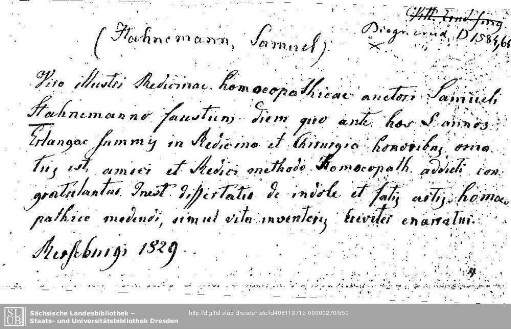 Hist. Erud. sing.
Biogr. erud. D 1584,66
(Hahnemann, Samuel)
Viro illustri Medicinae homoeopathicae auctori Samueli
Hahnemanno faustum diem quo ante hos L annos
Erlangae summis in Medicina et Chirurgia honoribus orna-
tus est, amici et Medici methodo Homoeopath. addicti con-
gratulantur. Inest dissertatio de indole et fatis artis homoeo-
pathico medendi, simul vita inventoris breviter enarratur.
Merseburgi 1829.
Sächsische Landesbibliothek –
Staats- und Universitätsbibliothek Dresden